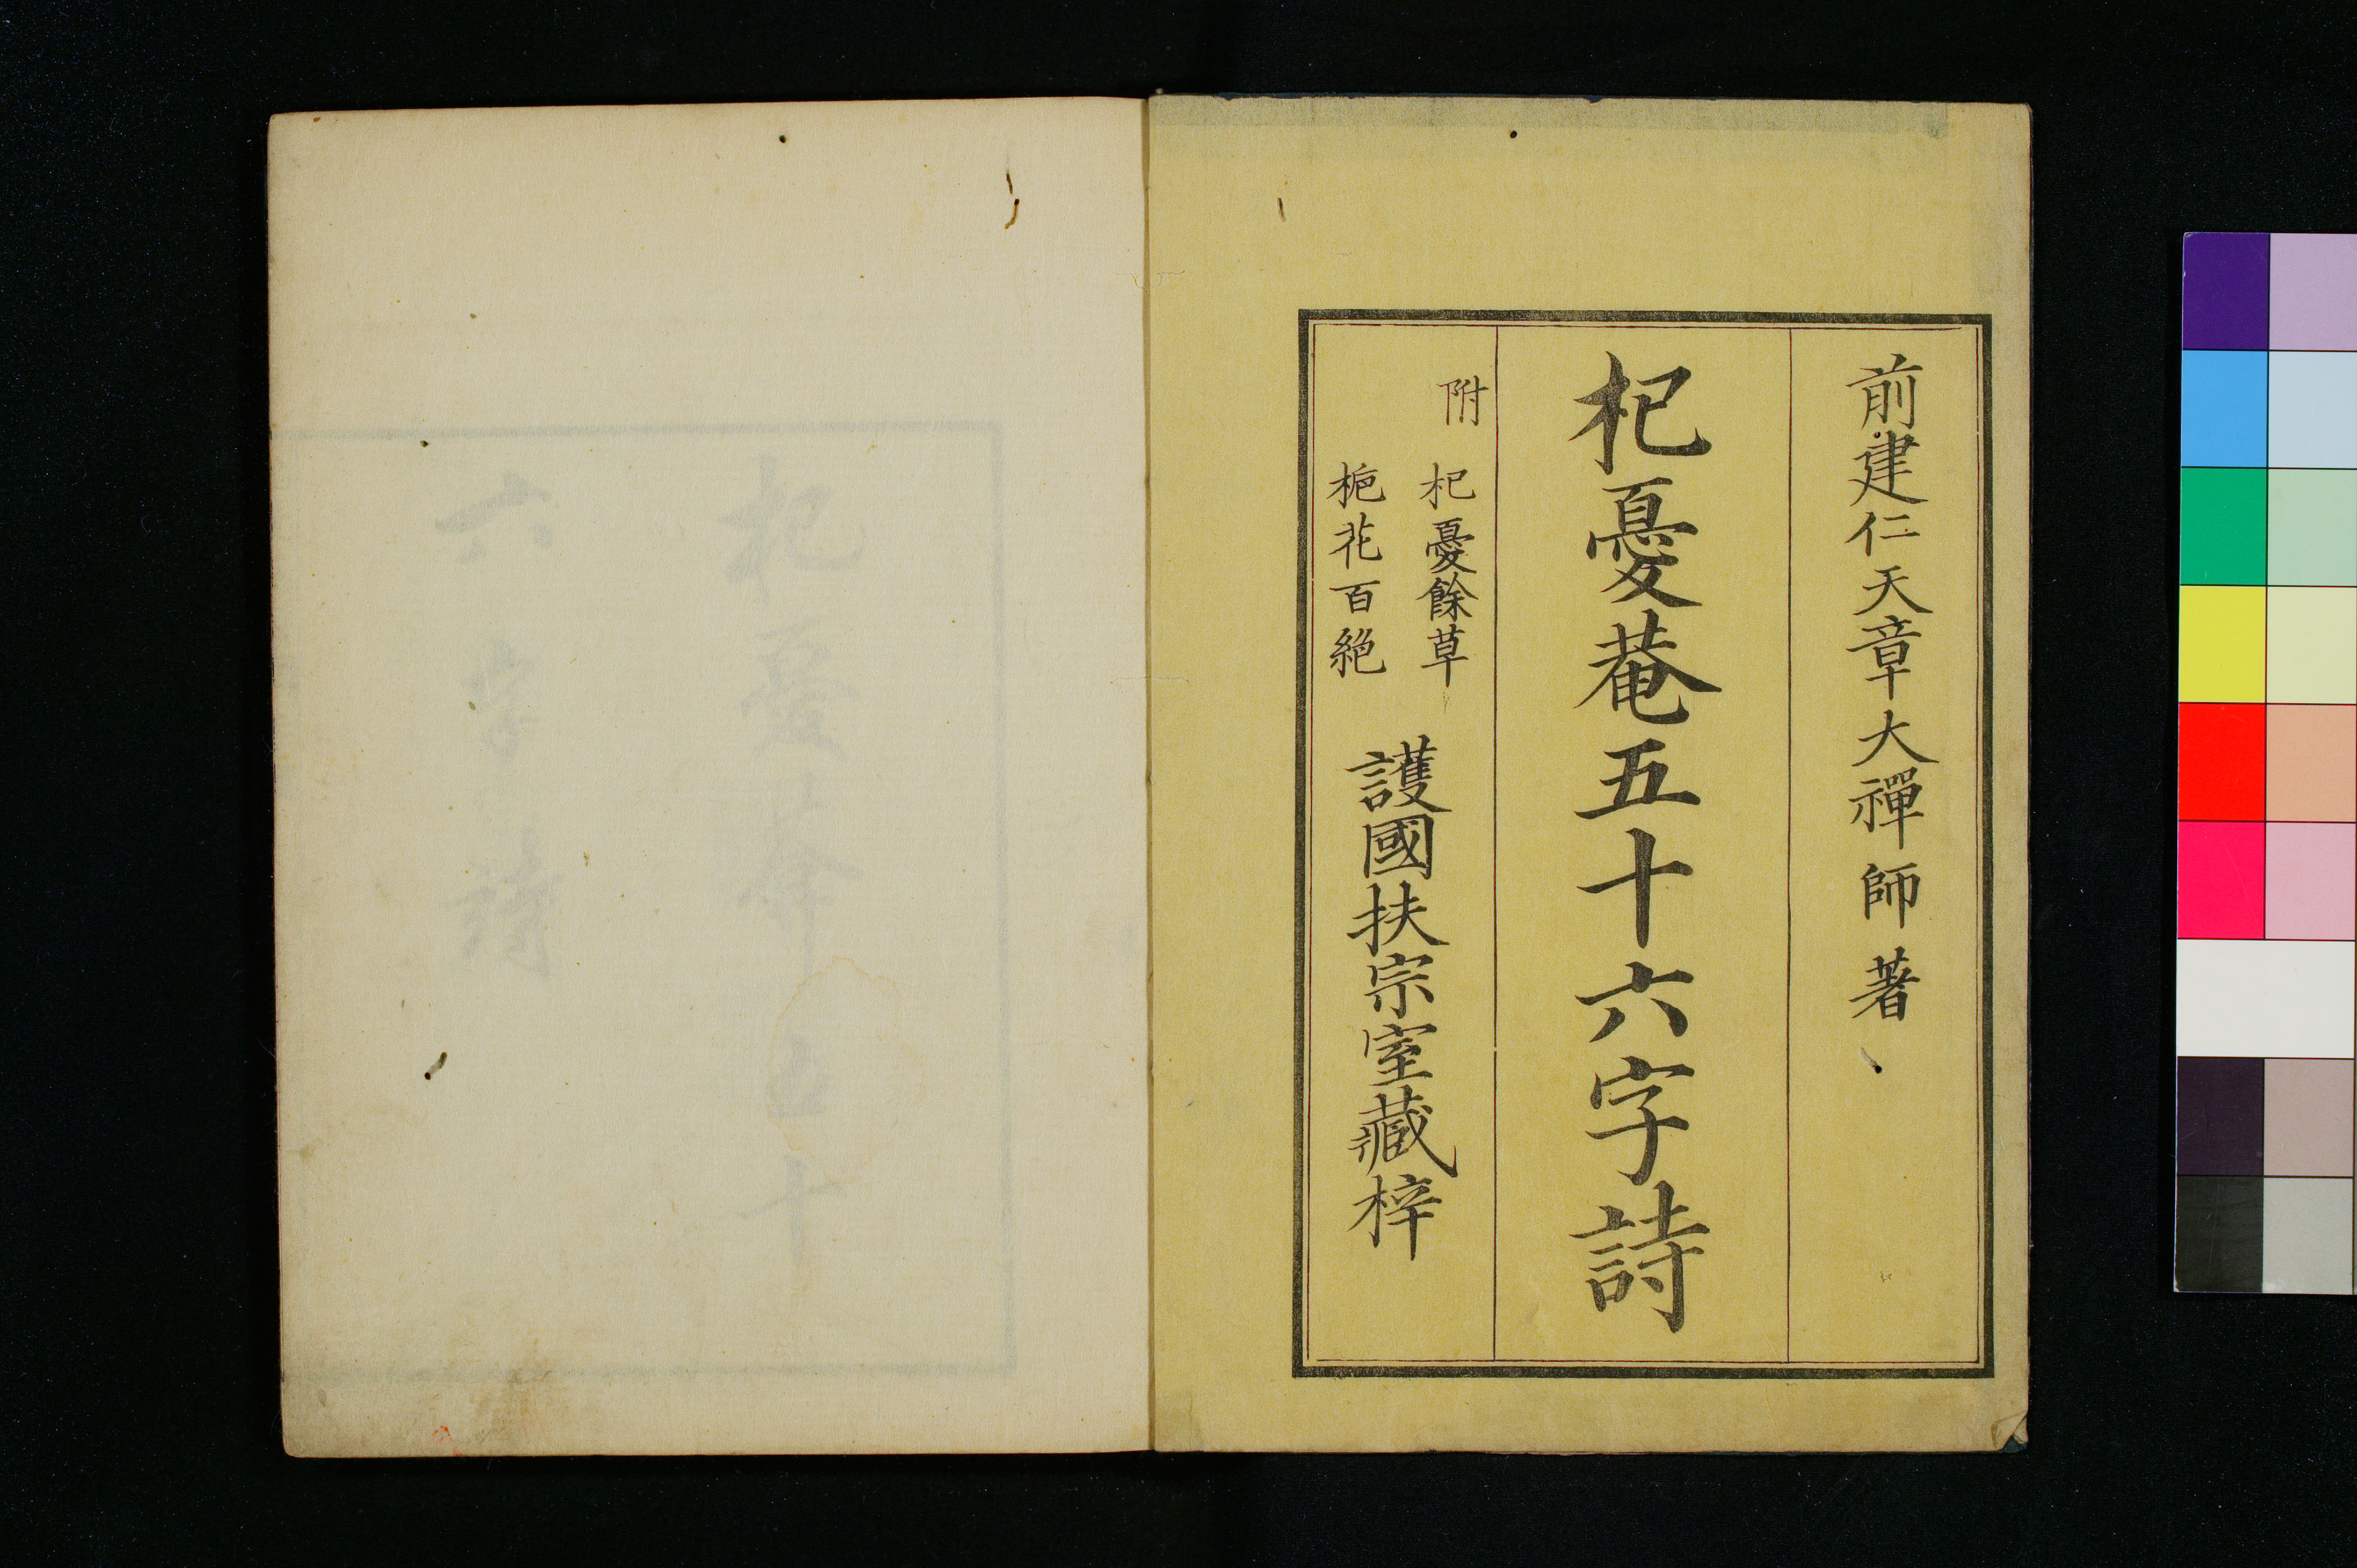 前建仁天章大禪師著
杞憂菴五十六字詩
附
杞憂餘草
梔花百絶
護國扶宗室藏梓